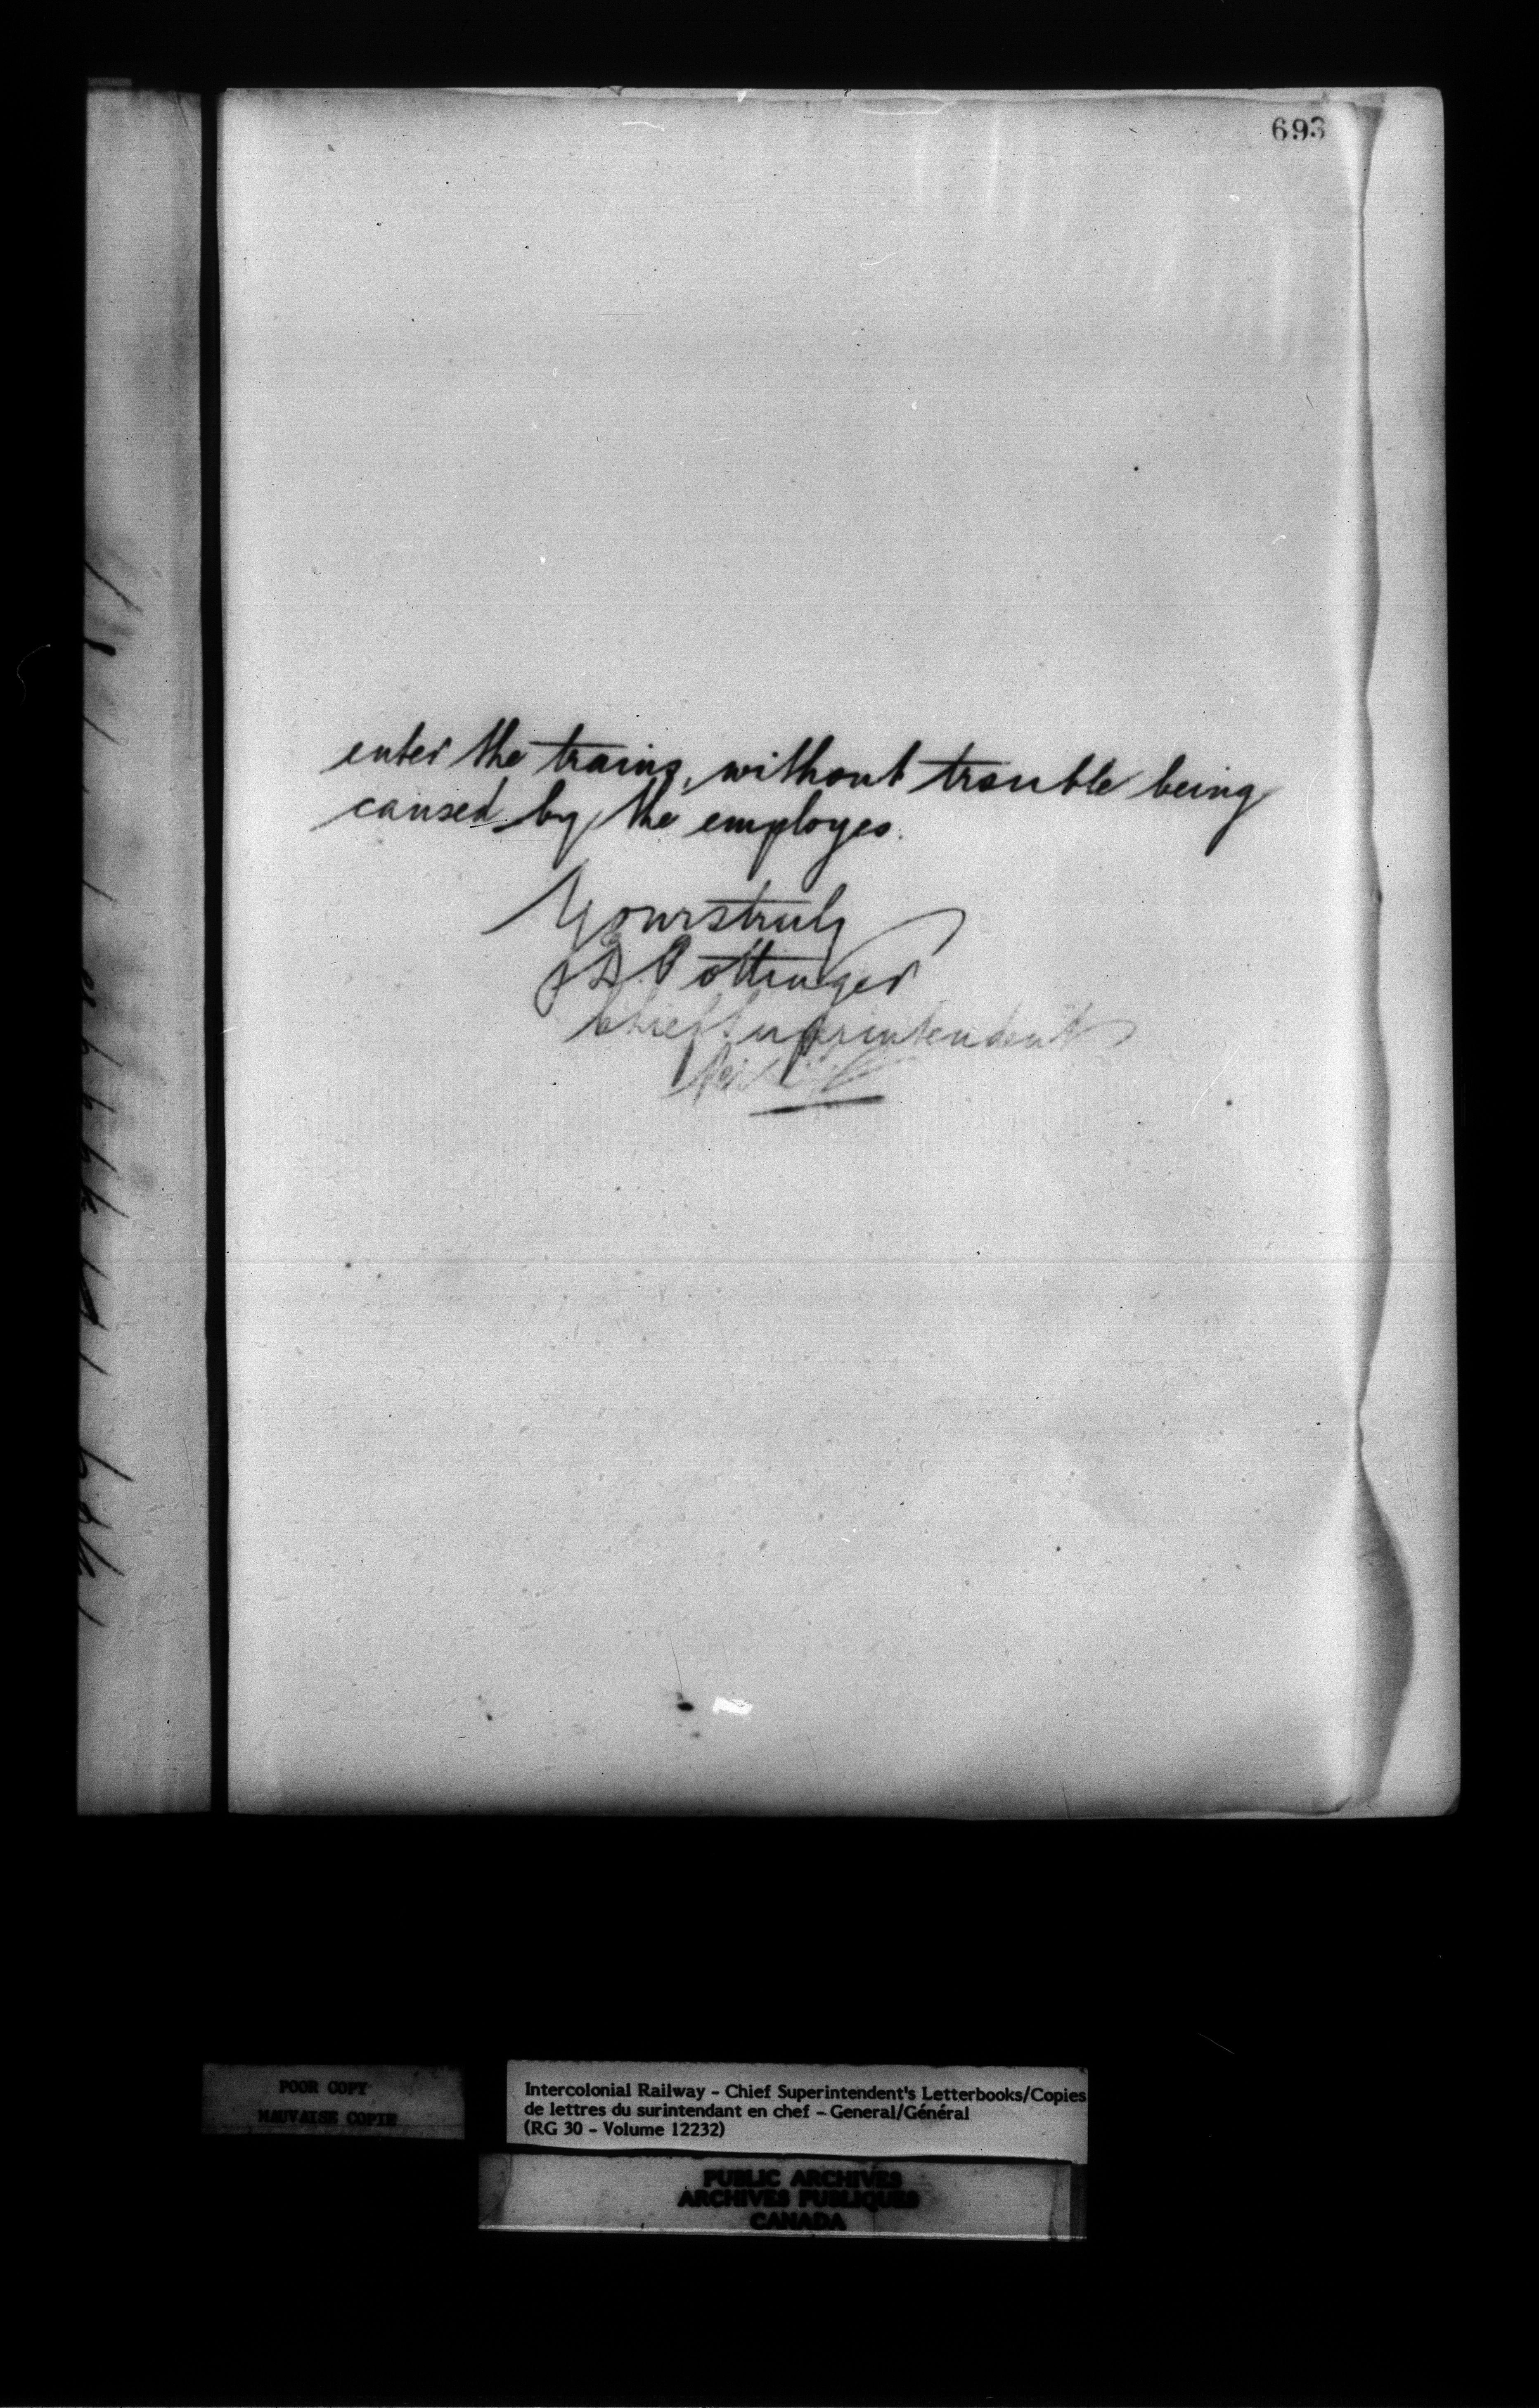 693
enter the trains, without trouble being
caused by the employes.
Yours truly
D Pottinger
Chief Superintendent
Per
POOR COPY
MAUVAISE COPIE
Intercolonial Railway - Chief Superintendent's Letterbooks/Copies
de lettres du surintendant en chef - General/Général
(RG 30 - Volume 12232)
PUBLIC ARCHIVES
ARCHIVES PUBLIQUES
CANADA